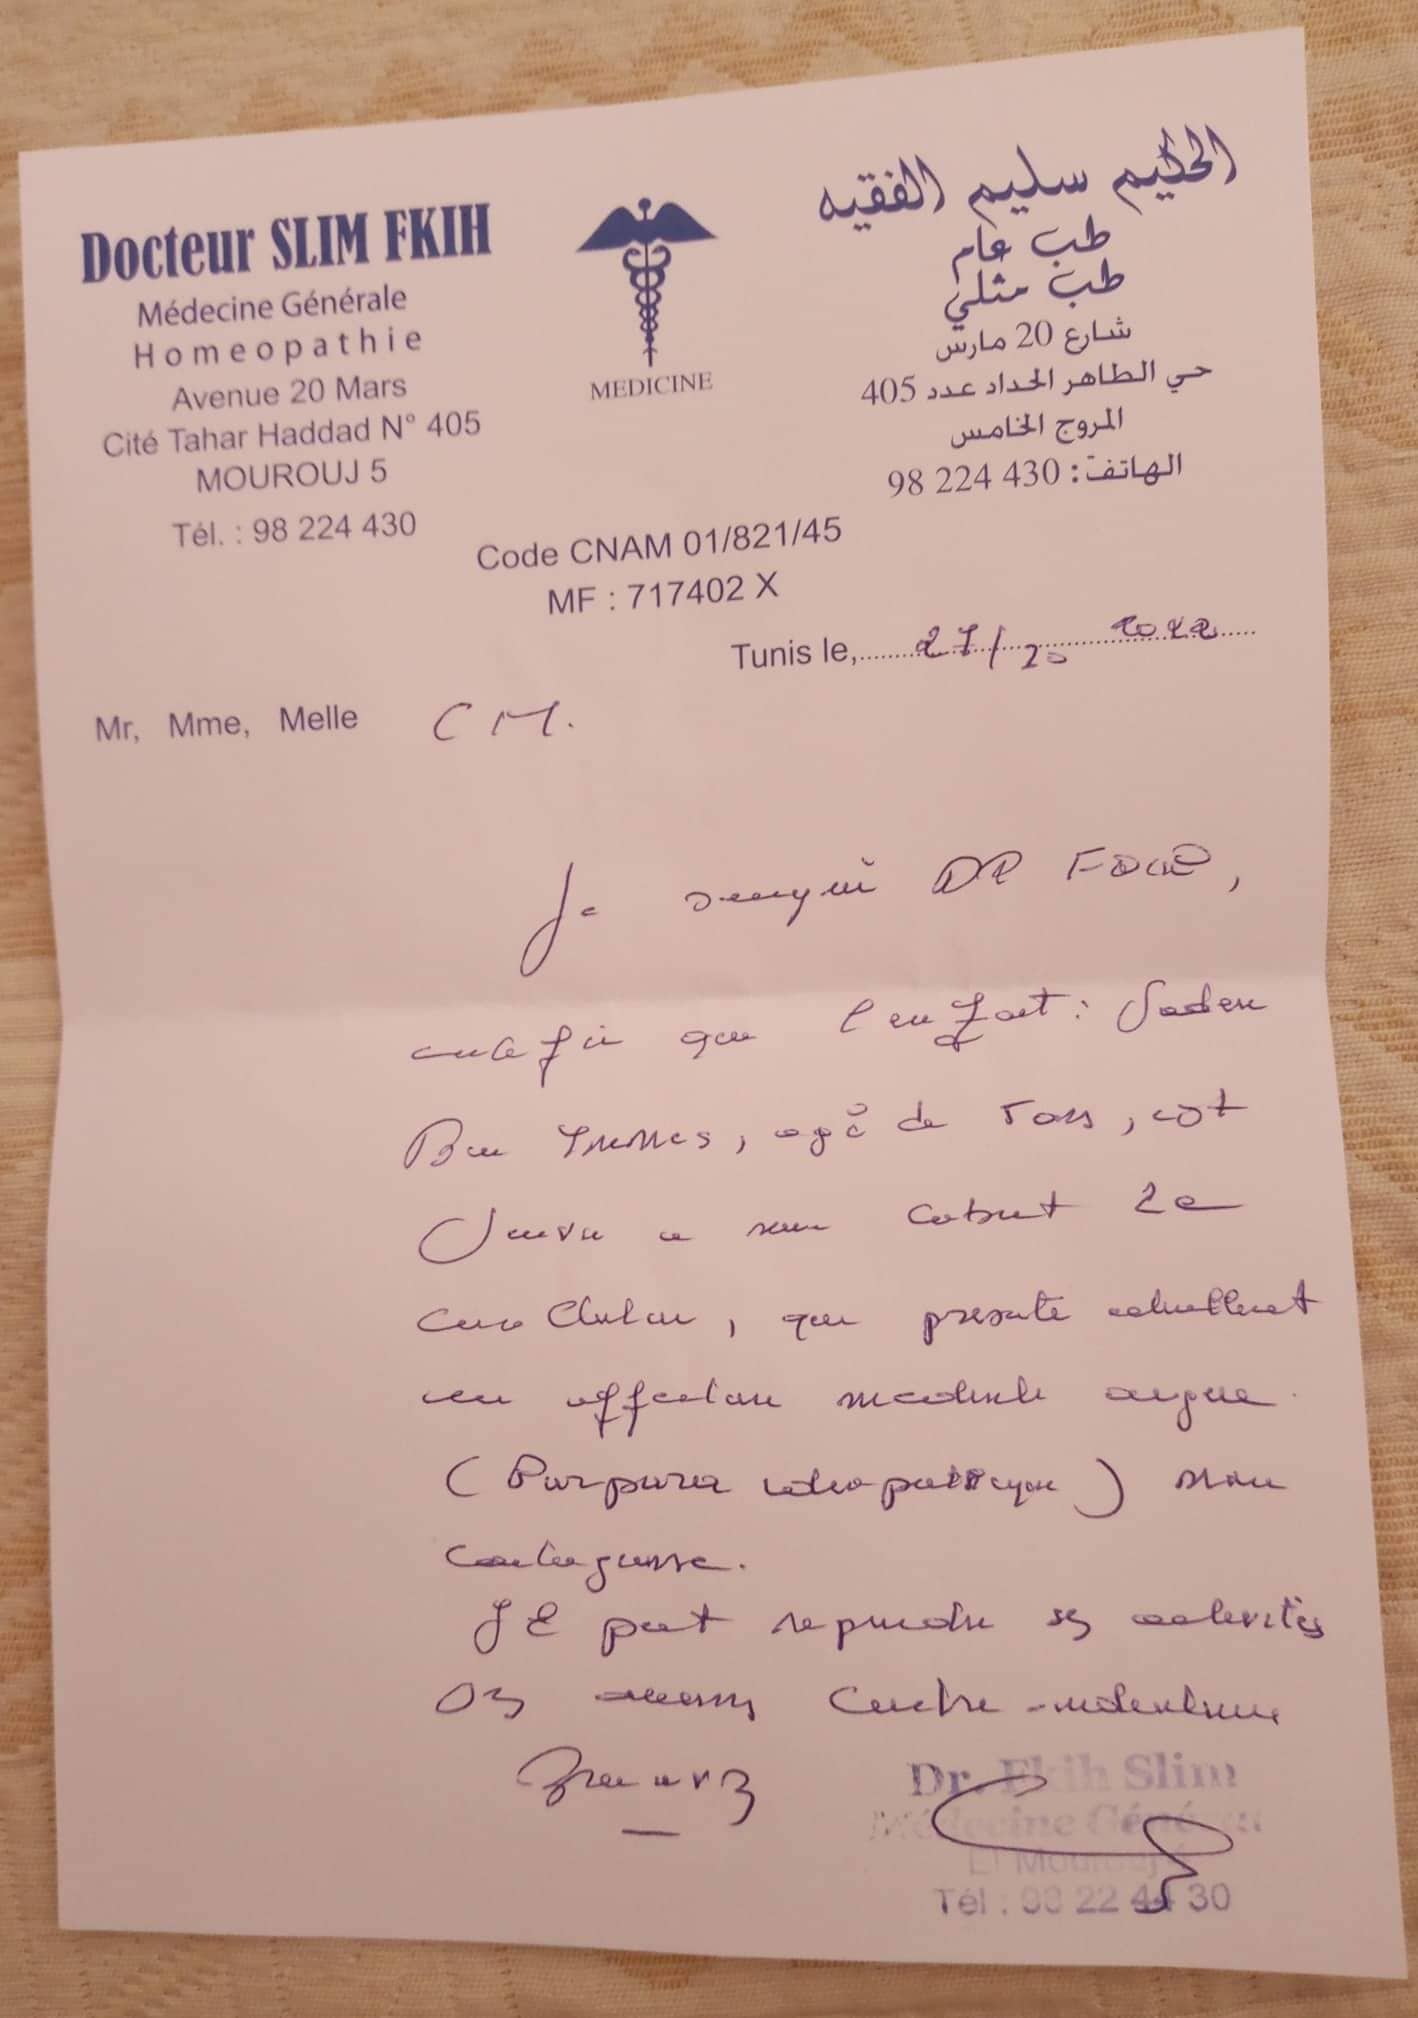 Docteur SLIM FKIH
Médecine Générale
Homeopathie
Avenue 20 Mars
Cité Tahar Haddad N° 405
MOUROUJ 5
Tél. : 98 224 430
MEDICINE
الحكيم سليم الفقيه
طب عام
طب مثلي
شارع 20 مارس
حي الطاهر الحداد عدد 405
المروج الخامس
الهاتف : 430 224 98
Code CNAM 01/821/45
MF : 717402 X
Tunis le, 27/ 2022
Mr, Mme, Melle C M.
Je DR
que l'enfant :
Ben , agé de 5 ans, est
a mon cabinet
, présente actuellement
une affection médicale
(Purpura ) non
contagieuse.
peut reprendre ses activités
contre-indication
Dr. Fkih Slim
Médecine Générale
El Mourouj
Tél : 98 22 44 30